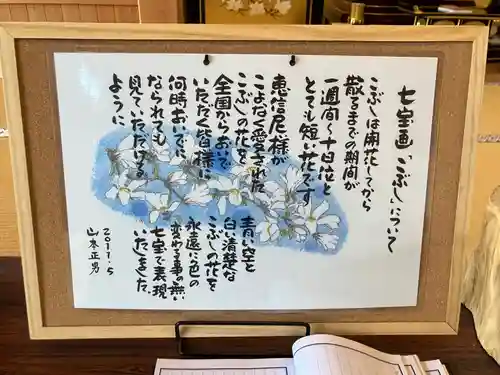 七宝画「こぶし」について
こぶしは開花してから
散るまでの期間が
一週間〜十日位と
とても短い花です
恵信尼様が
こよなく愛された
こぶしの花を
全国からおいで
いただく皆様に
何時おいでに
なられても
見ていただける
ように
青い空と
白い清楚な
こぶしの花を
永遠に色の
変わる事の無い
七宝で表現
いたしました
2011.5
山本正男